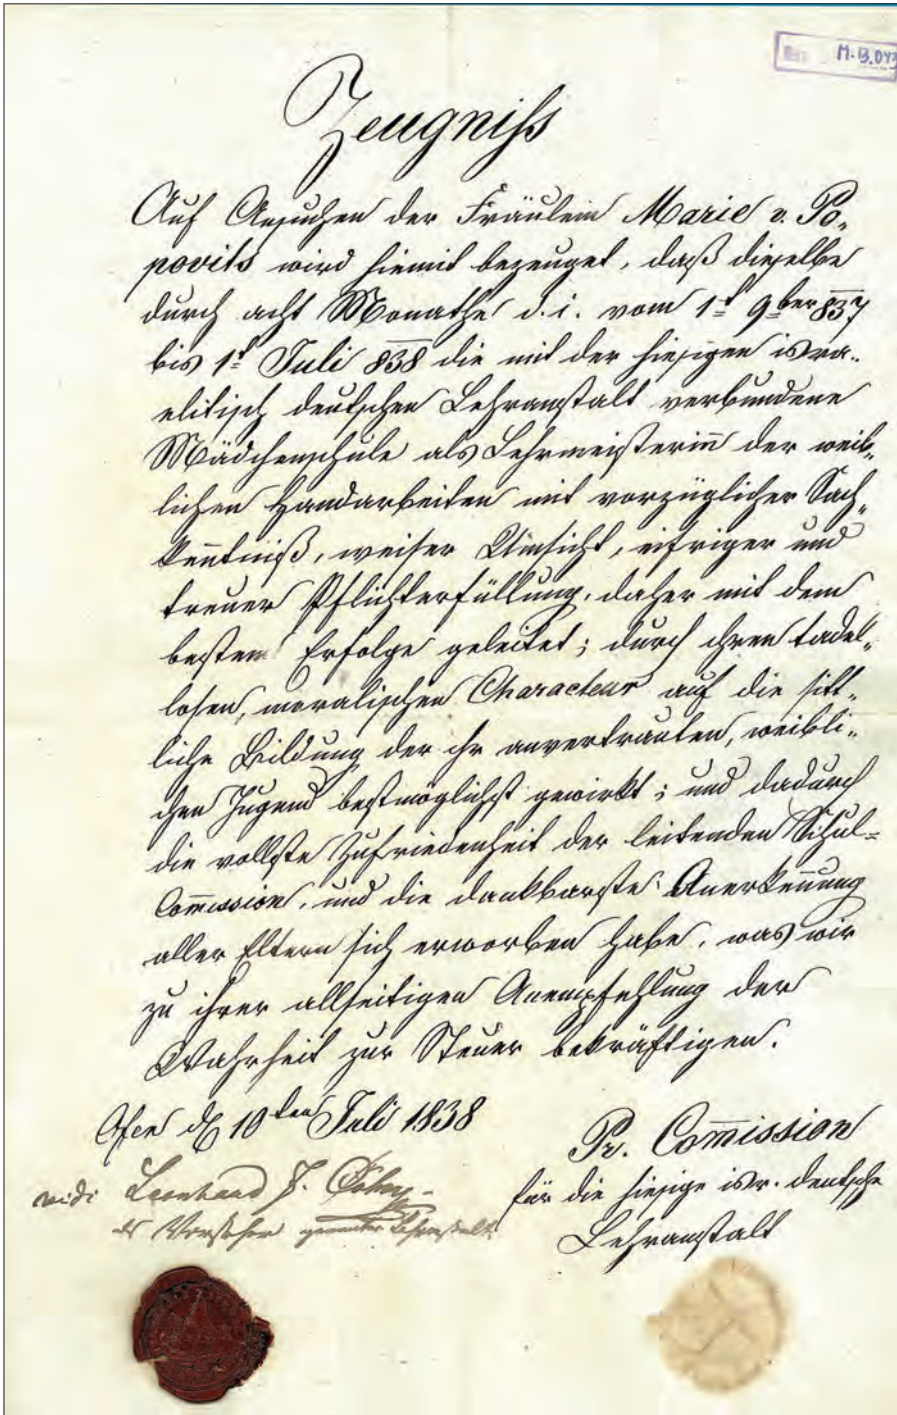 M.B.043
Zeugniſs
Auf Ansuchen der Fräulein Marie v. Po„
povits wird hiemit bezeuget, daß dieselbe
durch acht Monathe d. i. vom 1t 9ber 837
bis 1t Juli 838 die mit der hiesigen isra„
elitisch deutschen Lehranstalt verbundene
Mädchenschule als Lehrmeisterinn der weib„
lichen Handarbeiten mit vorzüglicher Sach„
kenntniß, weiser Umsicht, eifriger und
treuer Pflichterfüllung, daher mit dem
besten Erfolge geleitet; durch ihren tadel„
losen, moralischen Characteur auf die sitt„
liche Bildung der ihr anvertrauten, weibli„
chen Jugend bestmöglichst gewirkt; und dadurch
die vollste Zufriedenheit der leitenden Schul=
Com̅ission, und die dankbarste Anerken̅ung
aller Eltern sich erworben habe, was wir
zu ihrer allseitigen Anempfehlung der
Wahrheit zur Steuer bekräftigen.
Ofen d 10ten Juli 1838
Pr. Com̅ission
für die hiesige isr. deutsche
Lehranstalt
vidi Leonhard J.
Vorsteher genannter Lehranstalt